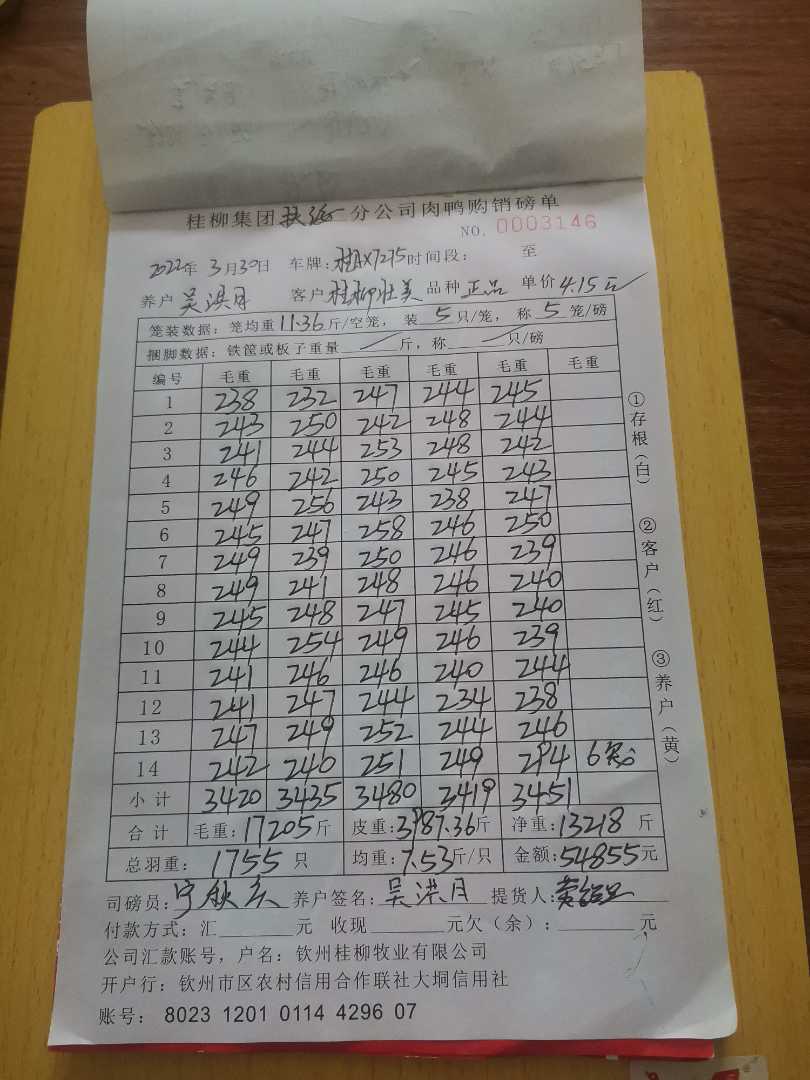 桂柳集团扶绥分公司肉鸭购销磅单
NO. 0003146
2022年 3月30日 车牌:桂AX7275 时间段: 至
养户 吴洪月 客户 桂柳壮美 品种 正品 单价 4.15元
笼装数据: 笼均重 11.36 斤/空笼, 装 5 只/笼, 称 5 笼/磅
捆脚数据: 铁筐或板子重量 斤, 称 只/磅
编号 毛重 毛重 毛重 毛重 毛重 毛重
1 238 232 247 244 245
2 243 250 242 248 244
3 241 244 253 248 242
4 246 242 250 245 243
5 249 256 243 238 247
6 245 247 258 246 250
7 249 239 250 246 239
8 249 241 248 246 240
9 245 248 247 245 240
10 244 254 249 246 239
11 241 246 246 240 244
12 241 247 244 234 238
13 247 249 252 244 246
14 242 240 251 249 294 6笼
小计 3420 3435 3480 3419 3451
合计 毛重: 17205 斤 皮重: 3987.36 斤 净重: 13218 斤
总羽重: 1755 只 均重: 7.53 斤/只 金额: 54855 元
司磅员: 养户签名: 吴洪月 提货人:
付款方式: 汇 元 收现 元欠(余): 元
公司汇款账号, 户名: 钦州桂柳牧业有限公司
开户行: 钦州市区农村信用合作联社大垌信用社
账号: 8023 1201 0114 4296 07
①存根(白) ②客户(红) ③养户(黄)